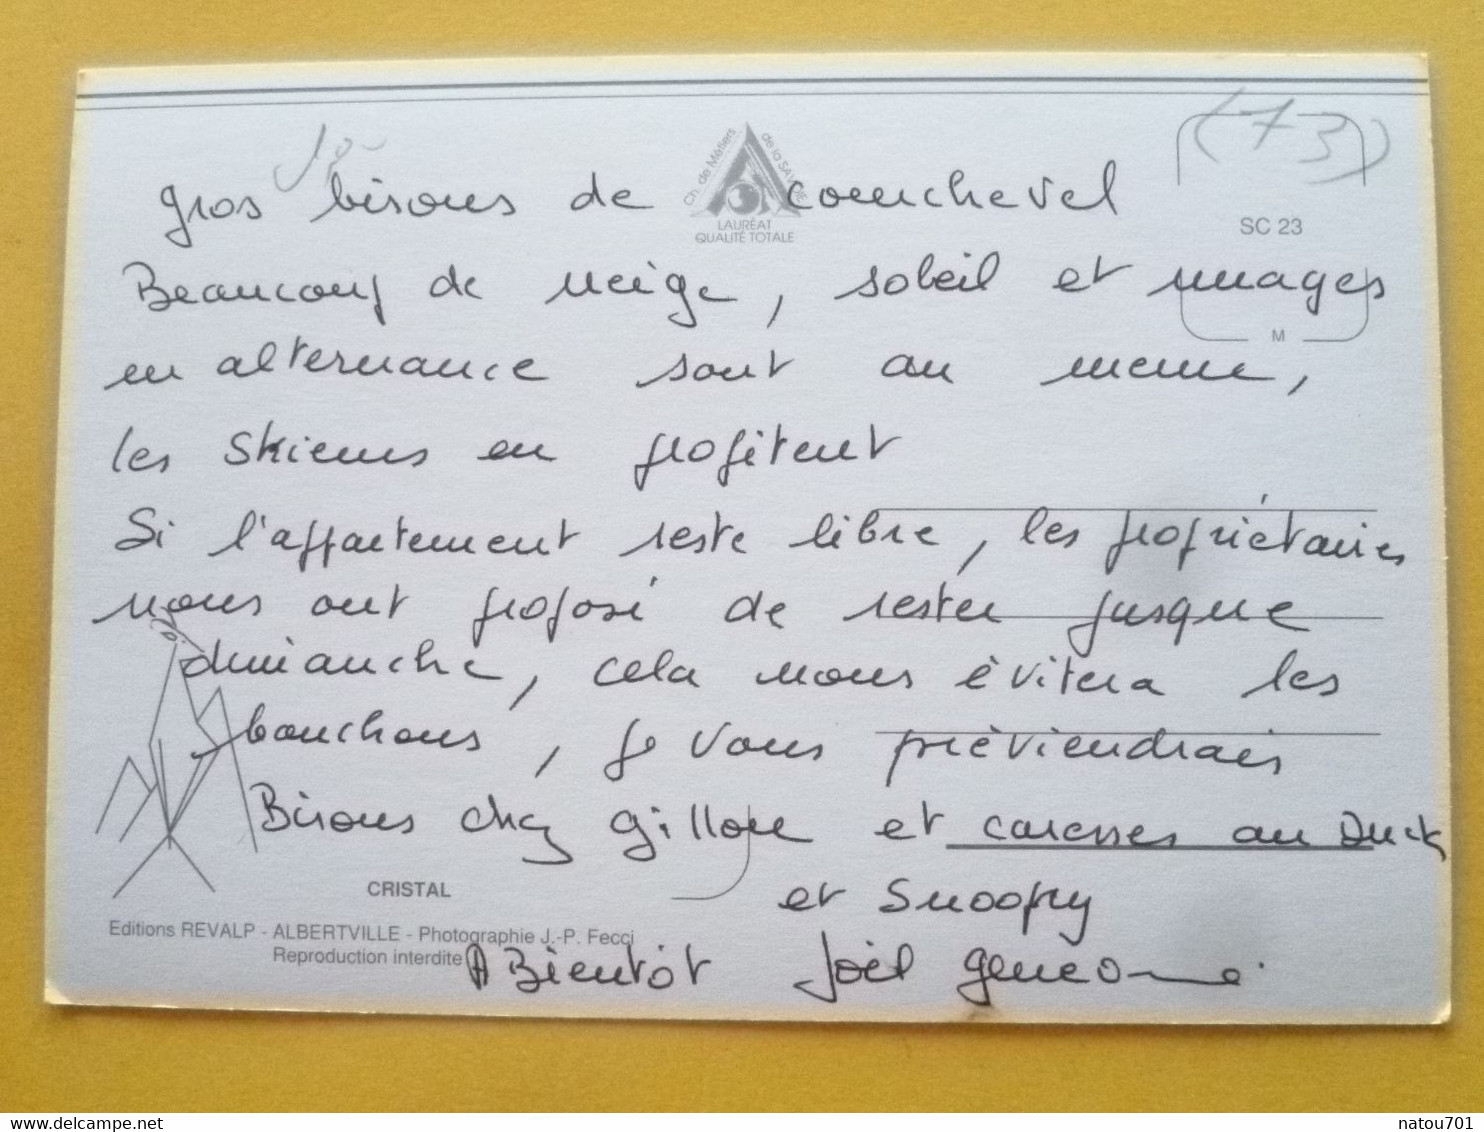 (73)
Ch. de Métiers de la SAVOIE
LAURÉAT
QUALITÉ TOTALE
SC 23
gros bisous de courchevel
Beaucoup de neige, soleil et nuages
M
en alternance sont au menu,
les skieurs en profitent
Si l'appartement reste libre, les propriétaires
nous ont proposé de rester jusque
dimanche, cela nous évitera les
bouchons, je vous préviendrais
Bisous chez gillou et caresses au Duck
et Snoopy
CRISTAL
Editions REVALP - ALBERTVILLE - Photographie J.-P. Fecci
Reproduction interdite
A Bientôt Joël
natou701